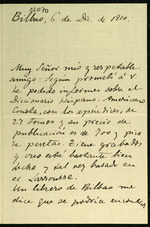 Bilbao, 6 de Dic de 1910.
Muy Señor mío y respetable
amigo: Según prometí a V.
he pedido informes sobre el
Diccionario Hispano-Americano
Consta, con los apéndices, de
27 tomos y su precio de
publicación es de 700 y pico
de pesetas. Tiene grabados,
y creo está bastante bien
hecho y tal vez basado en
el Larousse.
Un librero de Bilbao me
dice que se podría encontrar